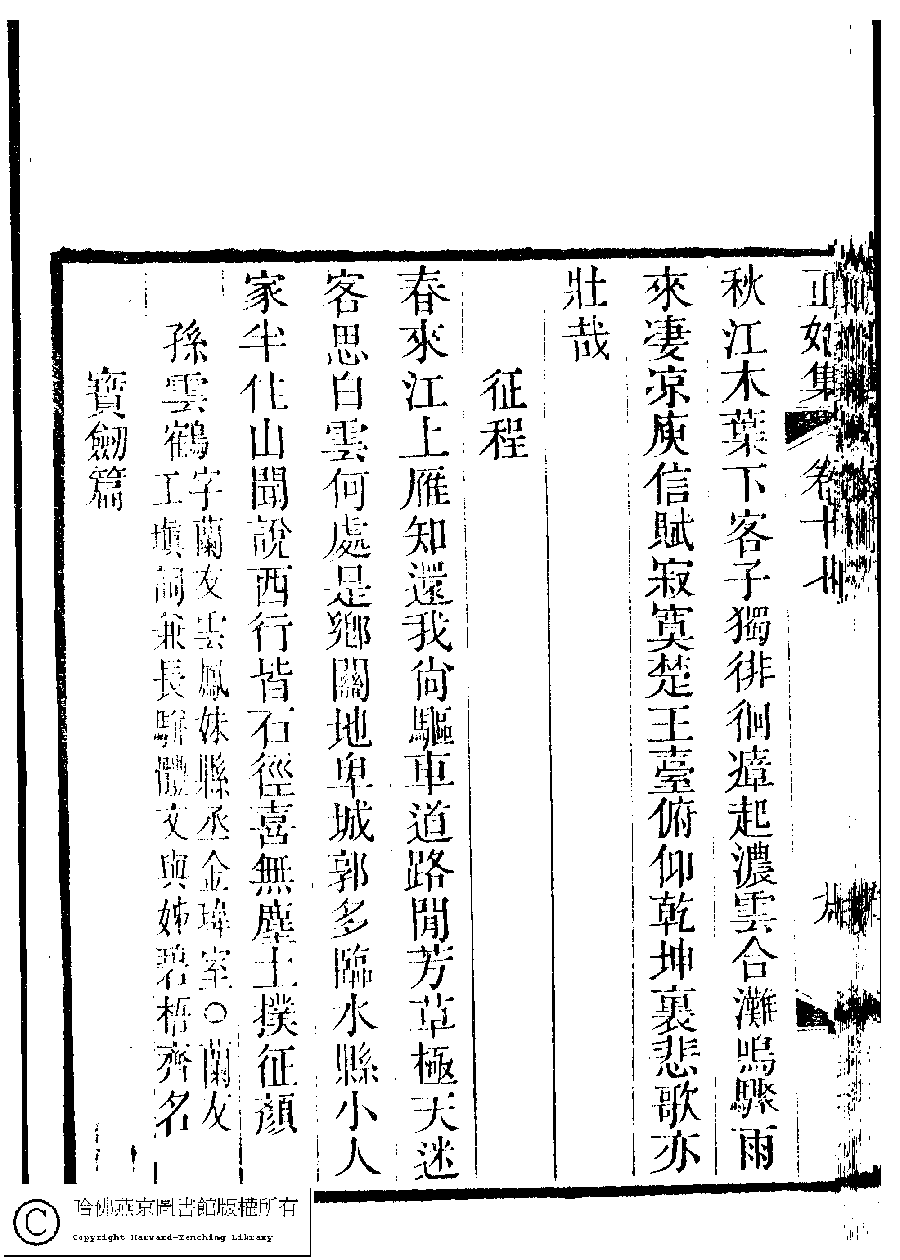 正始集
卷十
秋江木葉下客子獨徘徊瘴起濃雲合灘鳴驟雨
來凄凉庾信賦寂寞楚王臺俯仰乾坤裏悲歌亦
壯哉
征程
春來江上雁知還我尙驅車道路閒芳草極天迷
客思白雲何處是鄉關地卑城郭多臨水縣小人
家半住山聞說西行皆石徑喜無塵土撲征顏
孫雲鶴
字蘭友雲鳳妹縣丞金瑋室○蘭友
工塡詞兼長駢體文與姊碧梧齊名
寶劒篇
哈佛燕京圖書館版權所有
Copyright Harvard-Yenching Library